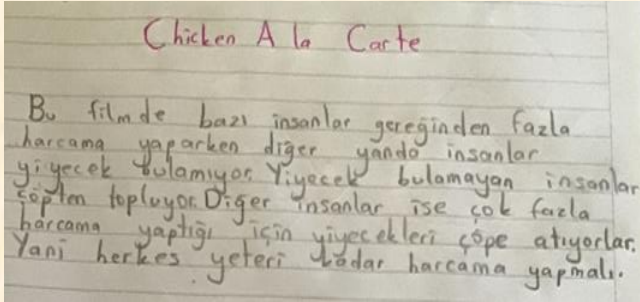 Chicken A la Carte
Bu filmde bazı insanlar gereğinden fazla
harcama yaparken diğer yanda insanlar
yiyecek bulamıyor. Yiyecek bulamayan insanlar
çöpten topluyor. Diğer insanlar ise çok fazla
harcama yaptığı için yiyecekleri çöpe atıyorlar.
Yani herkes yeteri kadar harcama yapmalı.